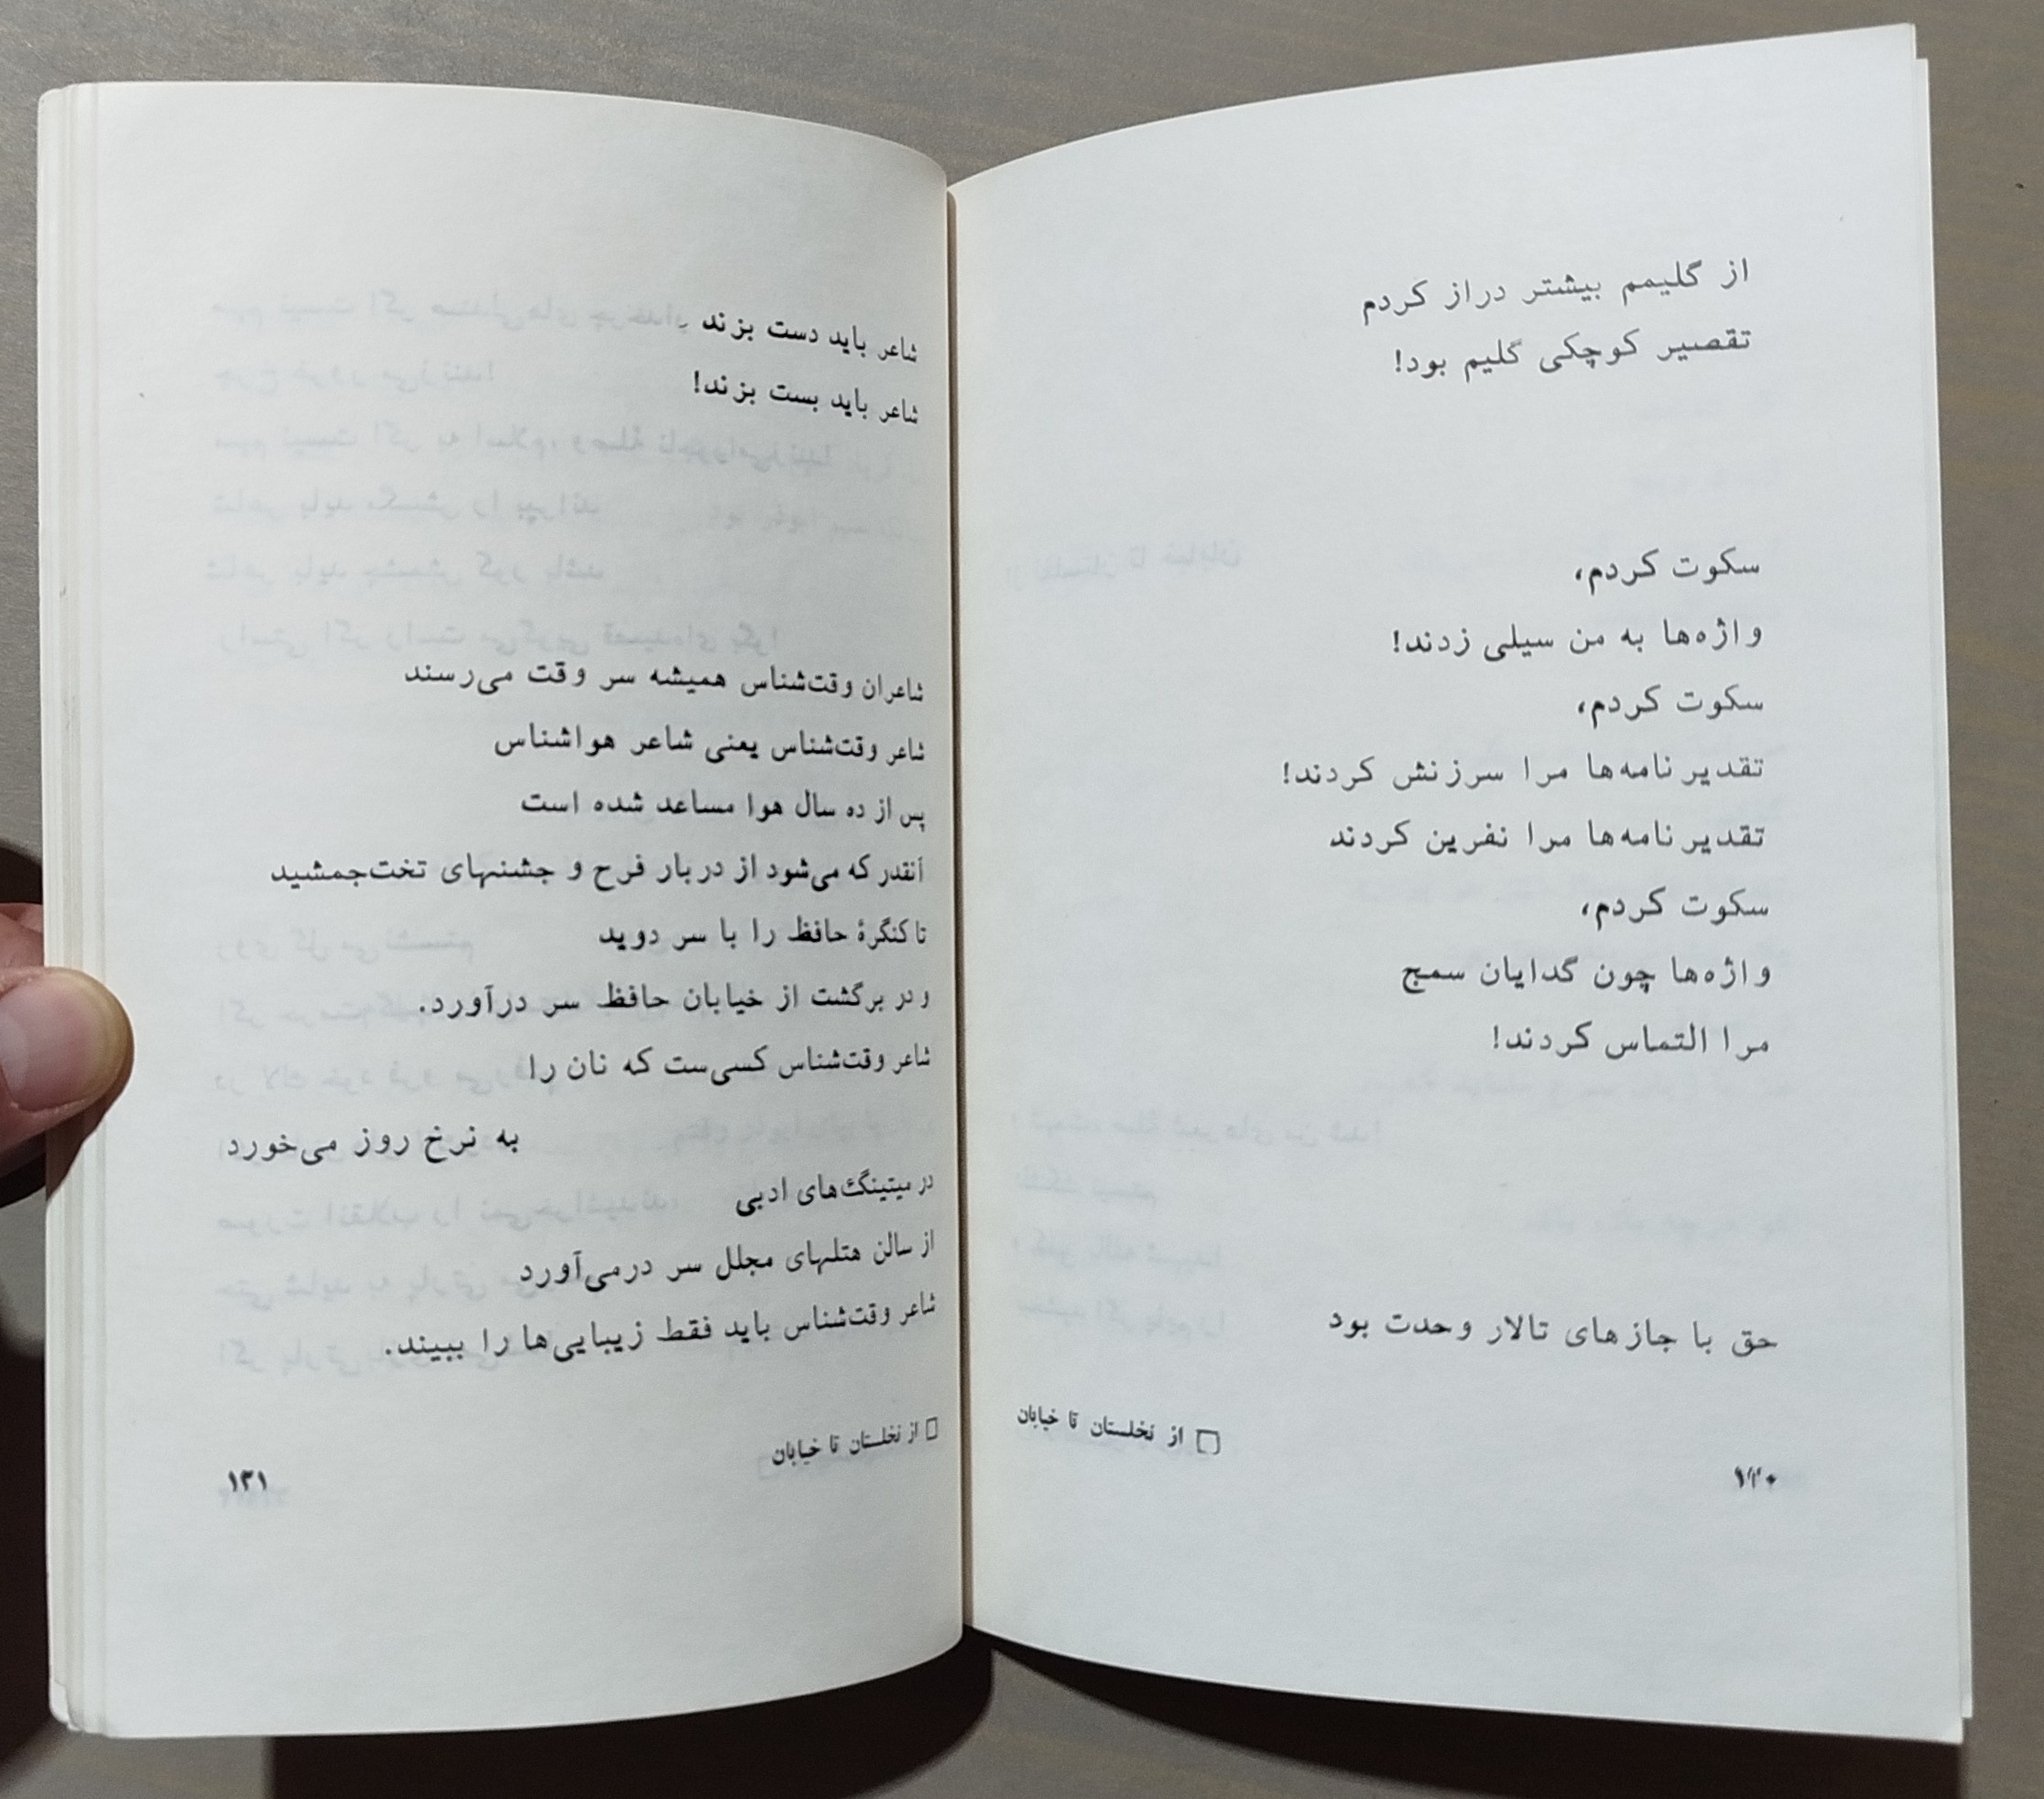 از گلیمم بیشتر دراز کردم
تقصیر کوچکی گلیم بود!
سکوت کردم،
واژه‌ها به من سیلی زدند!
سکوت کردم،
تقدیرنامه‌ها مرا سرزنش کردند!
تقدیرنامه‌ها مرا نفرین کردند
سکوت کردم،
واژه‌ها چون گدایان سمج
مرا التماس کردند!
حق با جازهای تالار وحدت بود
□ از نخلستان تا خیابان
۱۲۰
شاعر باید دست بزند
شاعر باید بست بزند!
شاعران وقت‌شناس همیشه سر وقت می‌رسند
شاعر وقت‌شناس یعنی شاعر هواشناس
پس از ده سال هوا مساعد شده است
آنقدر که می‌شود از دربار فرح و جشنهای تخت‌جمشید
تا کنگرهٔ حافظ را با سر دوید
و در برگشت از خیابان حافظ سر درآورد.
شاعر وقت‌شناس کسی‌ست که نان را
به نرخ روز می‌خورد
در میتینگ‌های ادبی
از سالن هتلهای مجلل سر درمی‌آورد
شاعر وقت‌شناس باید فقط زیبایی‌ها را ببیند.
□ از نخلستان تا خیابان
۱۲۱